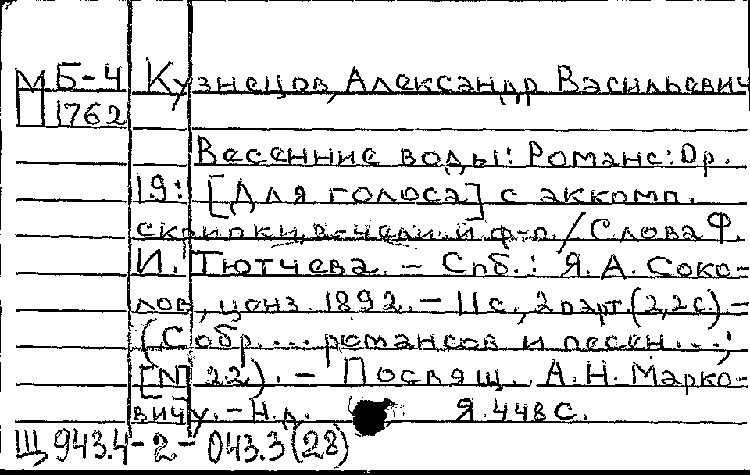 М Б-4 Кузнецов, Александр Васильевич
П 1762
Весенние воды: Романс: Op.
19: [Для голоса] с аккомп.
скрипки, в-чели и ф-п. / Слова Ф.
И. Тютчева. - Спб.: Я. А. Соко-
лов, ценз. 1892. - 11 с., 2 парт. (2,2с.) -
(Собр. ... романсов и песен ...;
[N] 22). - Посвящ. А.Н. Марко-
вичу. - Н.д. Я.448С.
Щ943.4-2-043.3(28)